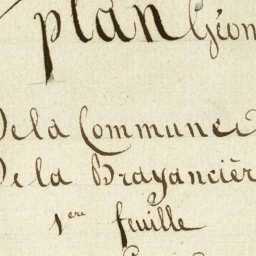 plan Géom
De la Commune
De la Brayancièr
1ere feuille